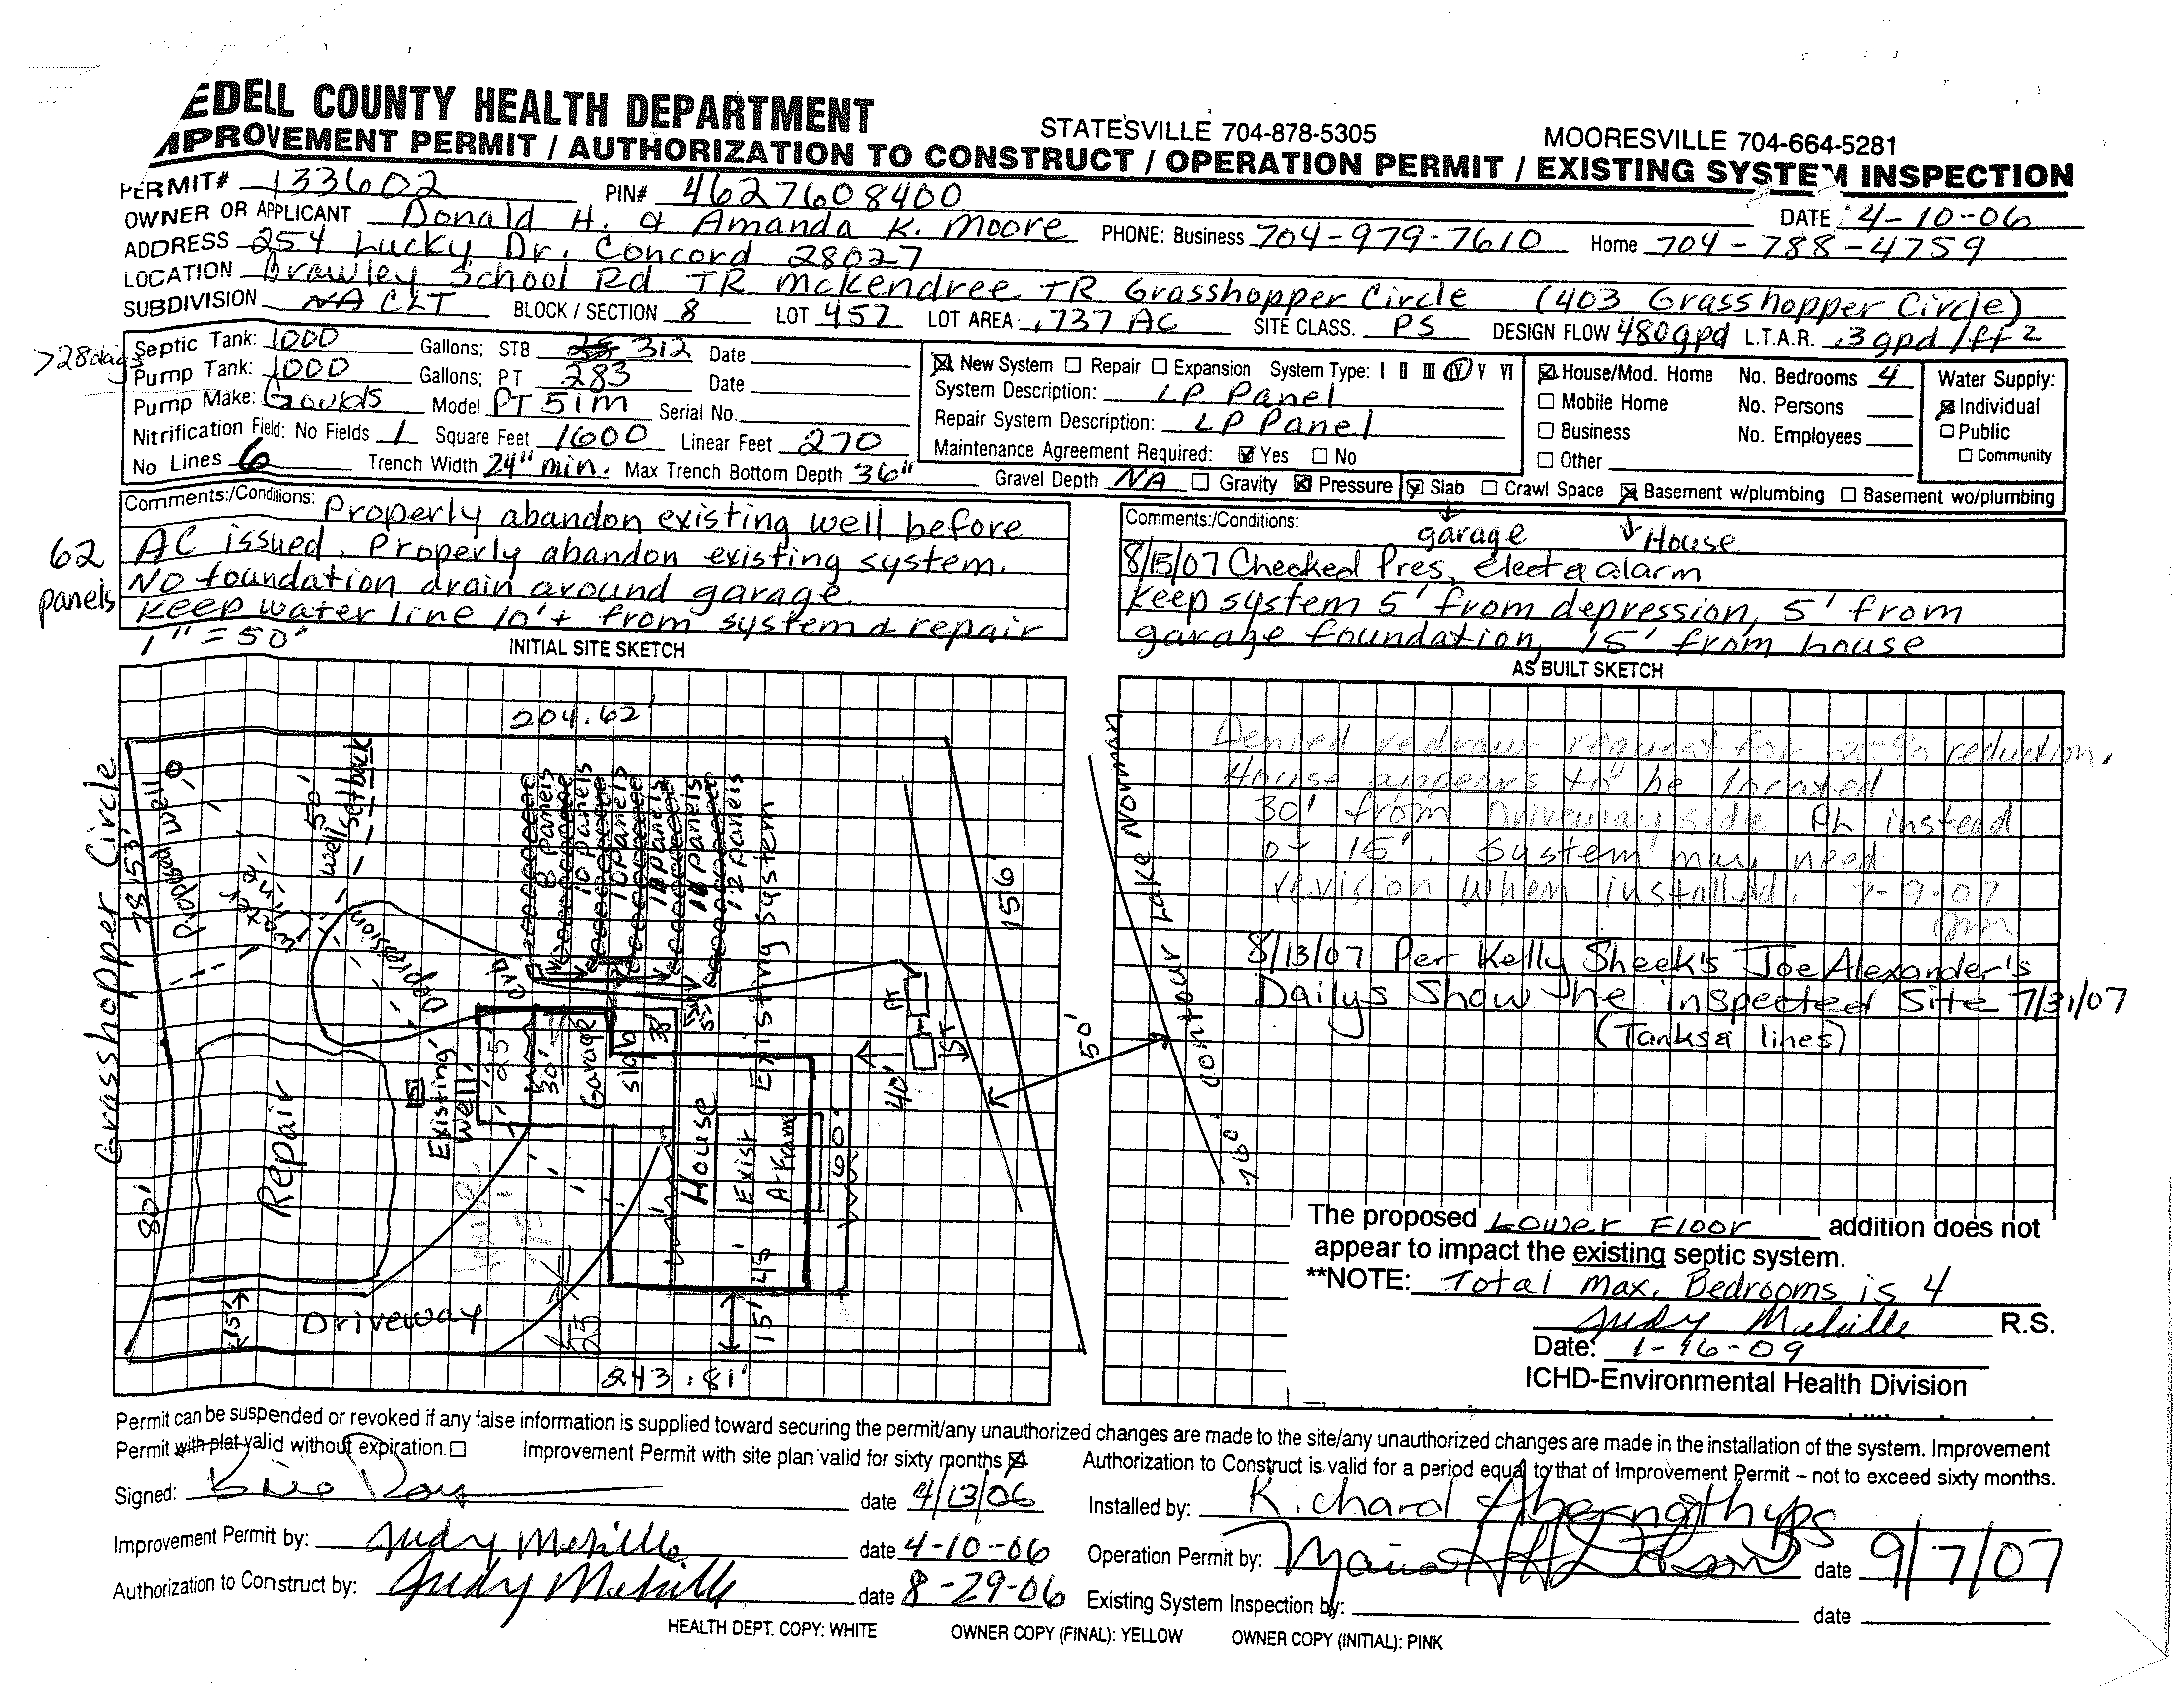 EDELL COUNTY HEALTH DEPARTMENT
STATESVILLE 704-878-5305 MOORESVILLE 704-664-5281
MPROVEMENT PERMIT / AUTHORIZATION TO CONSTRUCT / OPERATION PERMIT / EXISTING SYSTEM INSPECTION
PERMIT# 133602 PIN# 4627608400
OWNER OR APPLICANT Donald H. & Amanda K. Moore DATE 4-10-06
ADDRESS 254 Lucky Dr. Concord 28027 PHONE: Business 704-979-7610 Home 704-788-4759
LOCATION Brawley School Rd TR McKendree TR Grasshopper Circle (403 Grasshopper Circle)
SUBDIVISION NA CLT BLOCK / SECTION 8 LOT 457 LOT AREA .737 AC SITE CLASS. PS DESIGN FLOW 480gpd L.T.A.R. .3 gpd/ft2
>28days
Septic Tank: 1000 Gallons; STB 312 Date
Pump Tank: 1000 Gallons; PT 283 Date
Pump Make: Goulds Model PT 51M Serial No.
Nitrification Field: No Fields 1 Square Feet 1600 Linear Feet 270
No Lines 6 Trench Width 24" min. Max Trench Bottom Depth 36" Gravel Depth NA Gravity Pressure Slab Crawl Space Basement w/plumbing Basement wo/plumbing
New System Repair Expansion System Type: I II III IV V VI
System Description: LP Panel
Repair System Description: LP Panel
Maintenance Agreement Required: Yes No
House/Mod. Home No. Bedrooms 4
Mobile Home No. Persons
Business No. Employees
Other
Water Supply:
Individual
Public
Community
62 panels
Comments:/Conditions: Properly abandon existing well before
AC issued. Properly abandon existing system.
No foundation drain around garage.
Keep water line 10'+ from system & repair
Comments:/Conditions: garage House
8/15/07 Checked Pres, elect & alarm
Keep system 5' from depression, 5' from
garage foundation, 15' from house
1" = 50'
INITIAL SITE SKETCH
AS BUILT SKETCH
204.62'
Grasshopper Circle
78.53'
80'
Proposed well
50'
well setback
Depression
8 panels
10 panels
10 panels
11 panels
11 panels
12 panels
Existing system
156'
PT
ST
40'
50'
Existing well
25'
30'
Garage
slab
House
Exist
A-Frame
60'
45'
15'
Repair
15'
Driveway
25
243.81'
contour Lake Norman
760'
Denied redraw request for 25% reduction.
House appears to be located
30' from Driveway side PL instead
of 15'. System may need
revision when installed. 7-9-07
JM
8/13/07 Per Kelly Sheek's Joe Alexander's
Dailys Show he inspected Site 7/31/07
(Tanks & lines)
The proposed Lower Floor addition does not
appear to impact the existing septic system.
**NOTE: Total max. Bedrooms is 4
Judy Melville R.S.
Date: 1-16-09
ICHD-Environmental Health Division
Permit can be suspended or revoked if any false information is supplied toward securing the permit/any unauthorized changes are made to the site/any unauthorized changes are made in the installation of the system. Improvement
Permit with plat valid without expiration. Improvement Permit with site plan valid for sixty months Authorization to Construct is valid for a period equal to that of Improvement Permit – not to exceed sixty months.
Signed: date 4/13/06 Installed by: Richard Abernathy
Improvement Permit by: Judy Melville date 4-10-06 Operation Permit by: date 9/7/07
Authorization to Construct by: Judy Melville date 8-29-06 Existing System Inspection by: date
HEALTH DEPT. COPY: WHITE OWNER COPY (FINAL): YELLOW OWNER COPY (INITIAL): PINK